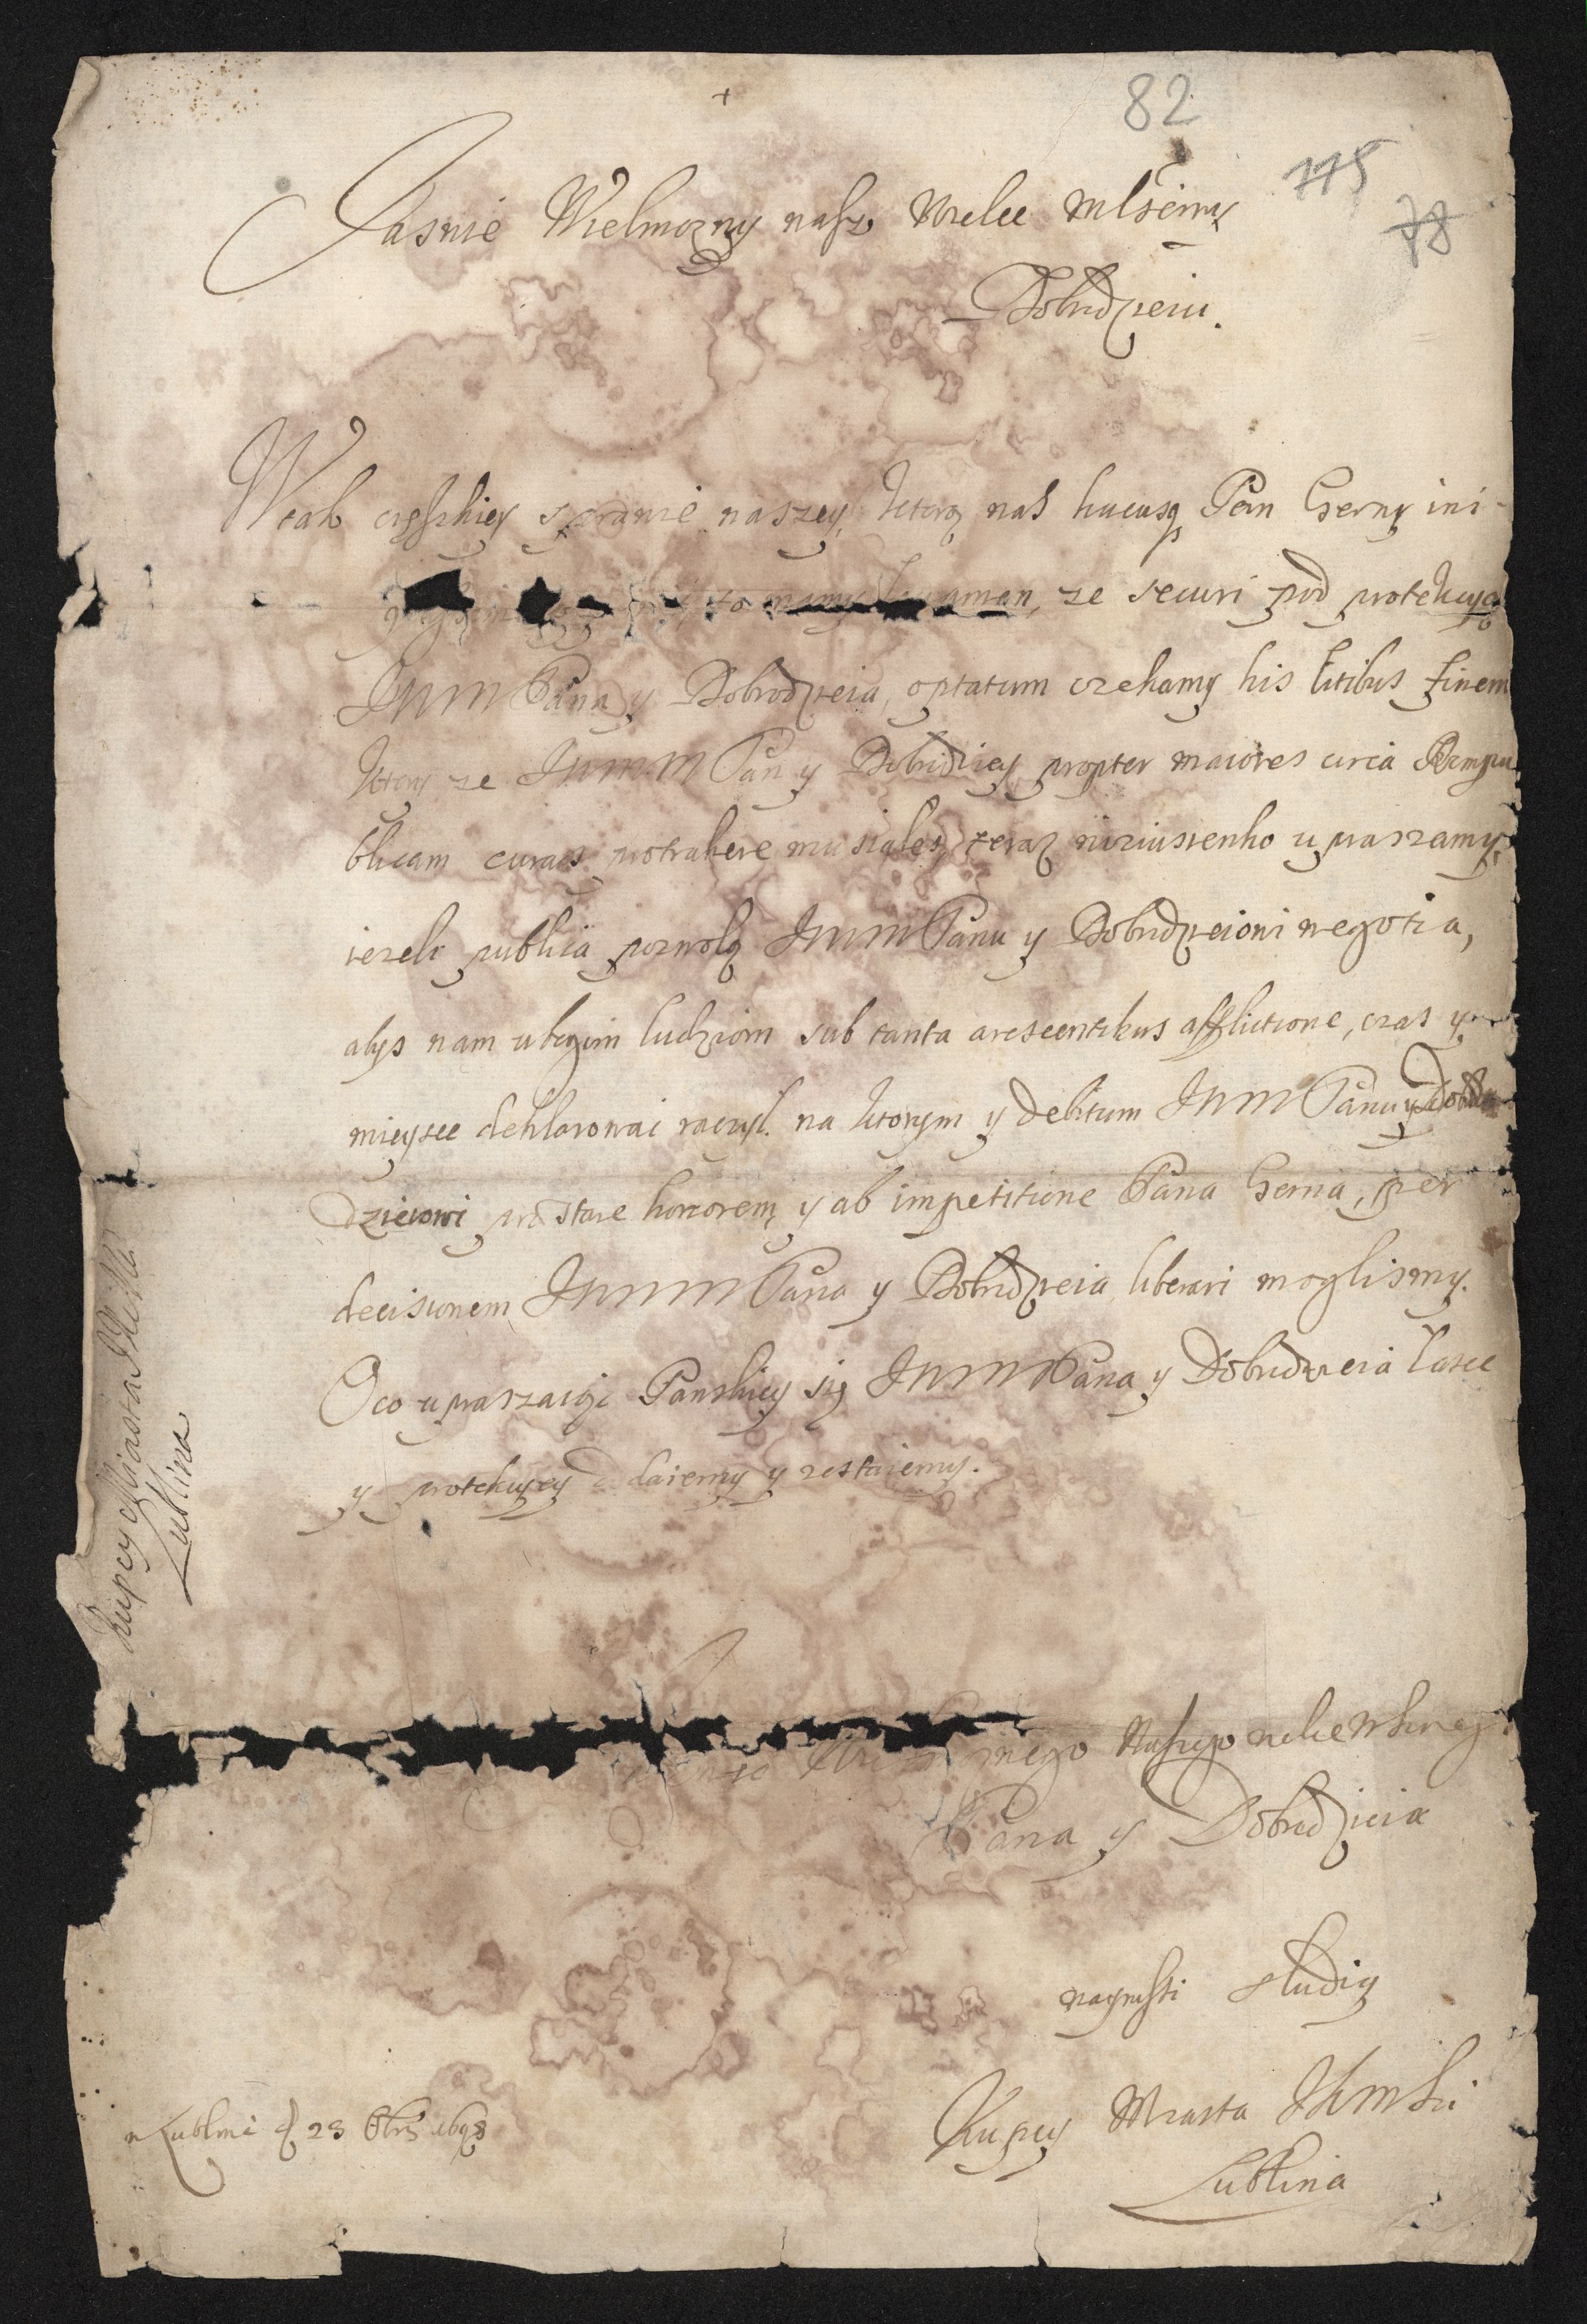 82
775
78
Jasnie Wielmozny nasz Wielce Mlsciwy
Dobrodzieiu.
W tak cięszkiey sprawie naszey, ktorą nas hucusq Pan Gerny ini-
to mamy levamen, ze securi pod protekcyą
JWM Pana y Dobrodzieia, optatum czekamy his litibus finem
ktory ze JWMM Pan y Dobrodziey propter maiores circa Rempu
blicam curas protrahere musiałes, teraz uniżienko upraszamy,
iezeli publica pozwolą JWM Panu y Dobrodzieiowi negotia,
abys nam ubogim ludziom sub tanta arescentibus afflictione, czas y
mieysce deklarowac raczył. na ktorym y debitum JWM Panu y Dobro
dzieiowi præstare honorem, y ab impetitione Pana Gerna, per
decisionem JWMM Pana y Dobrodzieia liberari moglismy.
O co upraszaiąc Panskiey się JWMM Pana y Dobrodzieia łasce
y protekcyey oddaiemy y zostaiemy.
mego Naszego wielce
Pana y Dobrodzieia
nayniszsi słudzy
Kupcy Miasta JKMsci
Lublina
w Lublinie d 23 8bris 1698
Kupcy Miasta JKMsci
Lublina